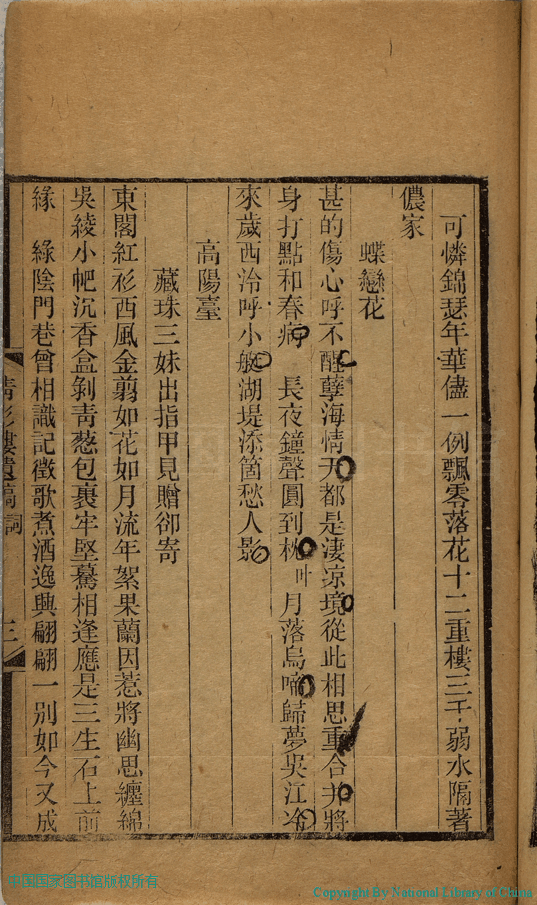 可憐錦瑟年華儘一例飄零落花十二重樓三千弱水隔著
儂家
蝶戀花
甚的傷心呼不醒孽海情天都是淒凉境從此相思重合并將
身打點和春病　長夜鐘聲圓到枕叶月落烏啼歸夢吳江冷
來歲西泠呼小艇湖堤添箇愁人影
高陽臺
藏珠三妹出指甲見贈卻寄
東閣紅衫西風金翦如花如月流年絮果蘭因惹將幽思纏綿
吳綾小帊沉香盒剝靑葱包裹牢堅驀相逢應是三生石上前
緣　綠陰門巷曾相識記徵歌煮酒逸興翩翩一別如今又成
影樓遺稿　詞　三
中国国家图书馆版权所有
Copyright By National Library of China